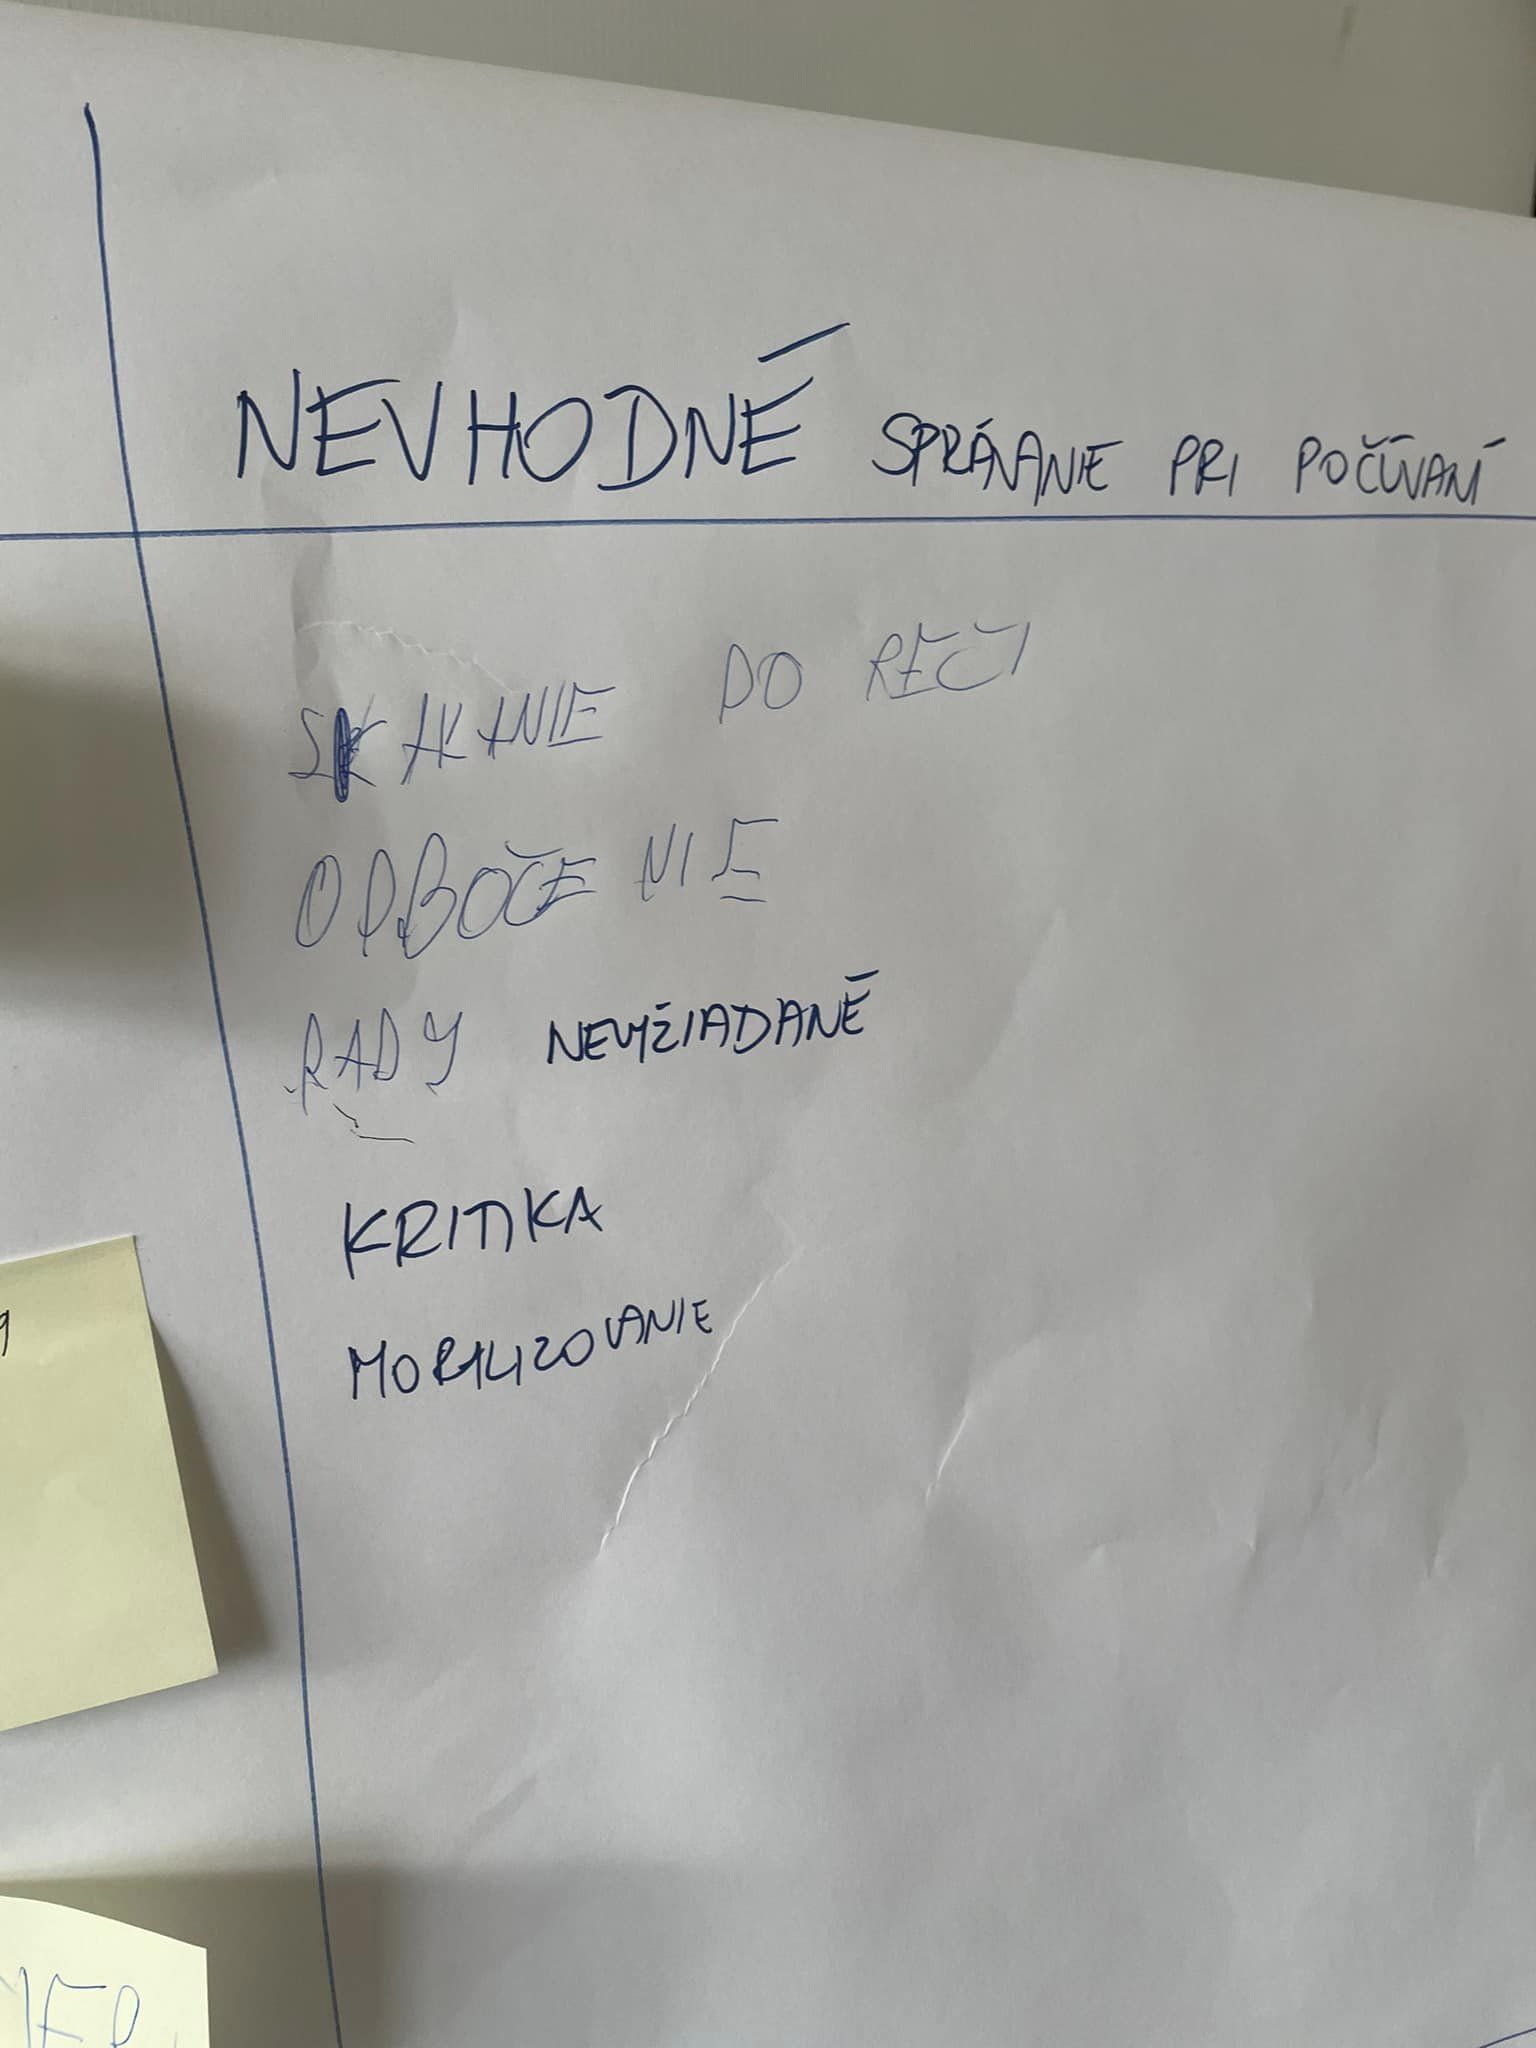 NEVHODNÉ SPRÁVANIE PRI POČÚVANÍ
SKAKANIE DO REČI
ODBOČENIE
RADY NEVYŽIADANÉ
KRITIKA
MORALIZOVANIE